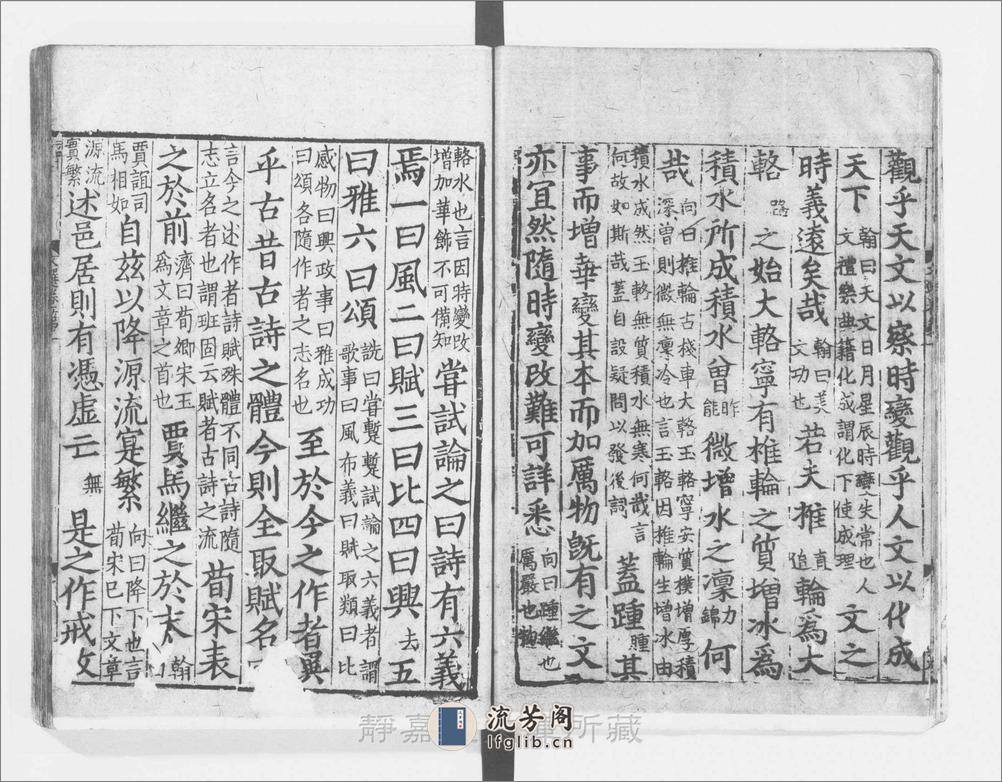 觀乎天文以察時變觀乎人文以化成
天下翰曰天文日月星辰時變失常也人文禮樂典籍化成謂化下使成理文之
時義遠矣哉翰曰美文功也若夫椎直追輪為大
輅路之始大輅寧有椎輪之質增冰為
積水所成積水曾昨能微增冰之凜力錦何
哉向曰椎輪古棧車大輅玉輅寧安質樸增厚積深曽則微無凛冷也言玉輅因椎輪生增冰由
積水成然玉輅無質積水無寒何哉言何故如斯哉蓋自設疑問以發後詞蓋踵腫其
事而增華變其本而加厲物既有之文
亦宜然隨時變改難可詳悉向曰踵繼也厲嚴也
輅冰也言因時變改增加華飾不可備知嘗試論之曰詩有六義
焉一曰風二曰賦三曰比四曰興去五
曰雅六曰頌銑曰嘗蹔蹔試論之六義者謂歌事曰風布義曰賦取類曰比
感物曰興政事曰雅成功曰頌各隨作者之志名也至於今之作者異
乎古昔古詩之體今則全取賦名
言今之述作者詩賦殊體不同古詩隨志立名者也謂班固云賦者古詩之流荀宋表
之於前濟曰荀卿宋玉為文章之首也賈馬繼之於末翰
賈誼司馬相如自茲以降源流寔繁向曰降下也言荀宋已下文章
源流實繁述邑居則有憑虛亡無是之作戒畋
靜嘉 所藏
流芳阁
lfglib.cn